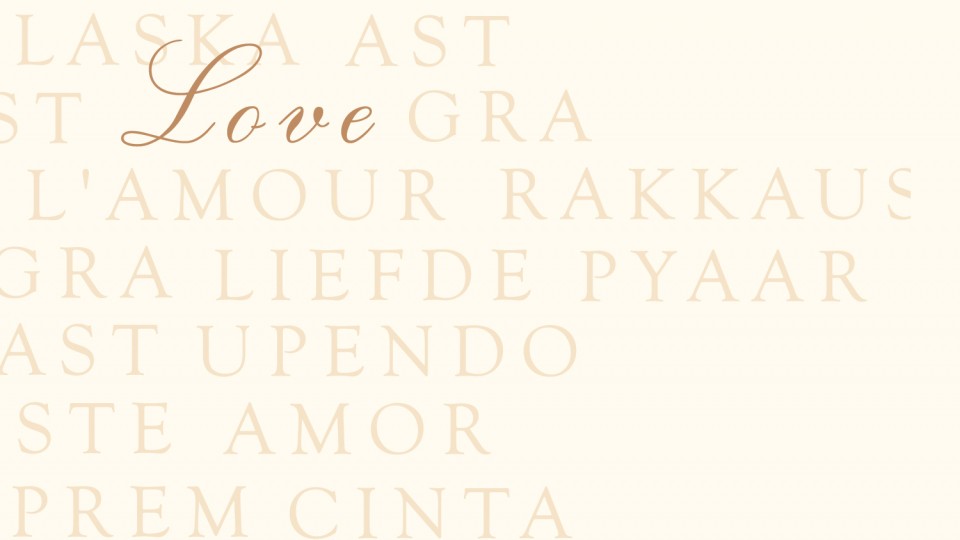 LASKA AST
ST Love GRA
L'AMOUR RAKKAUS
GRA LIEFDE PYAAR
AST UPENDO
STE AMOR
PREM CINTA